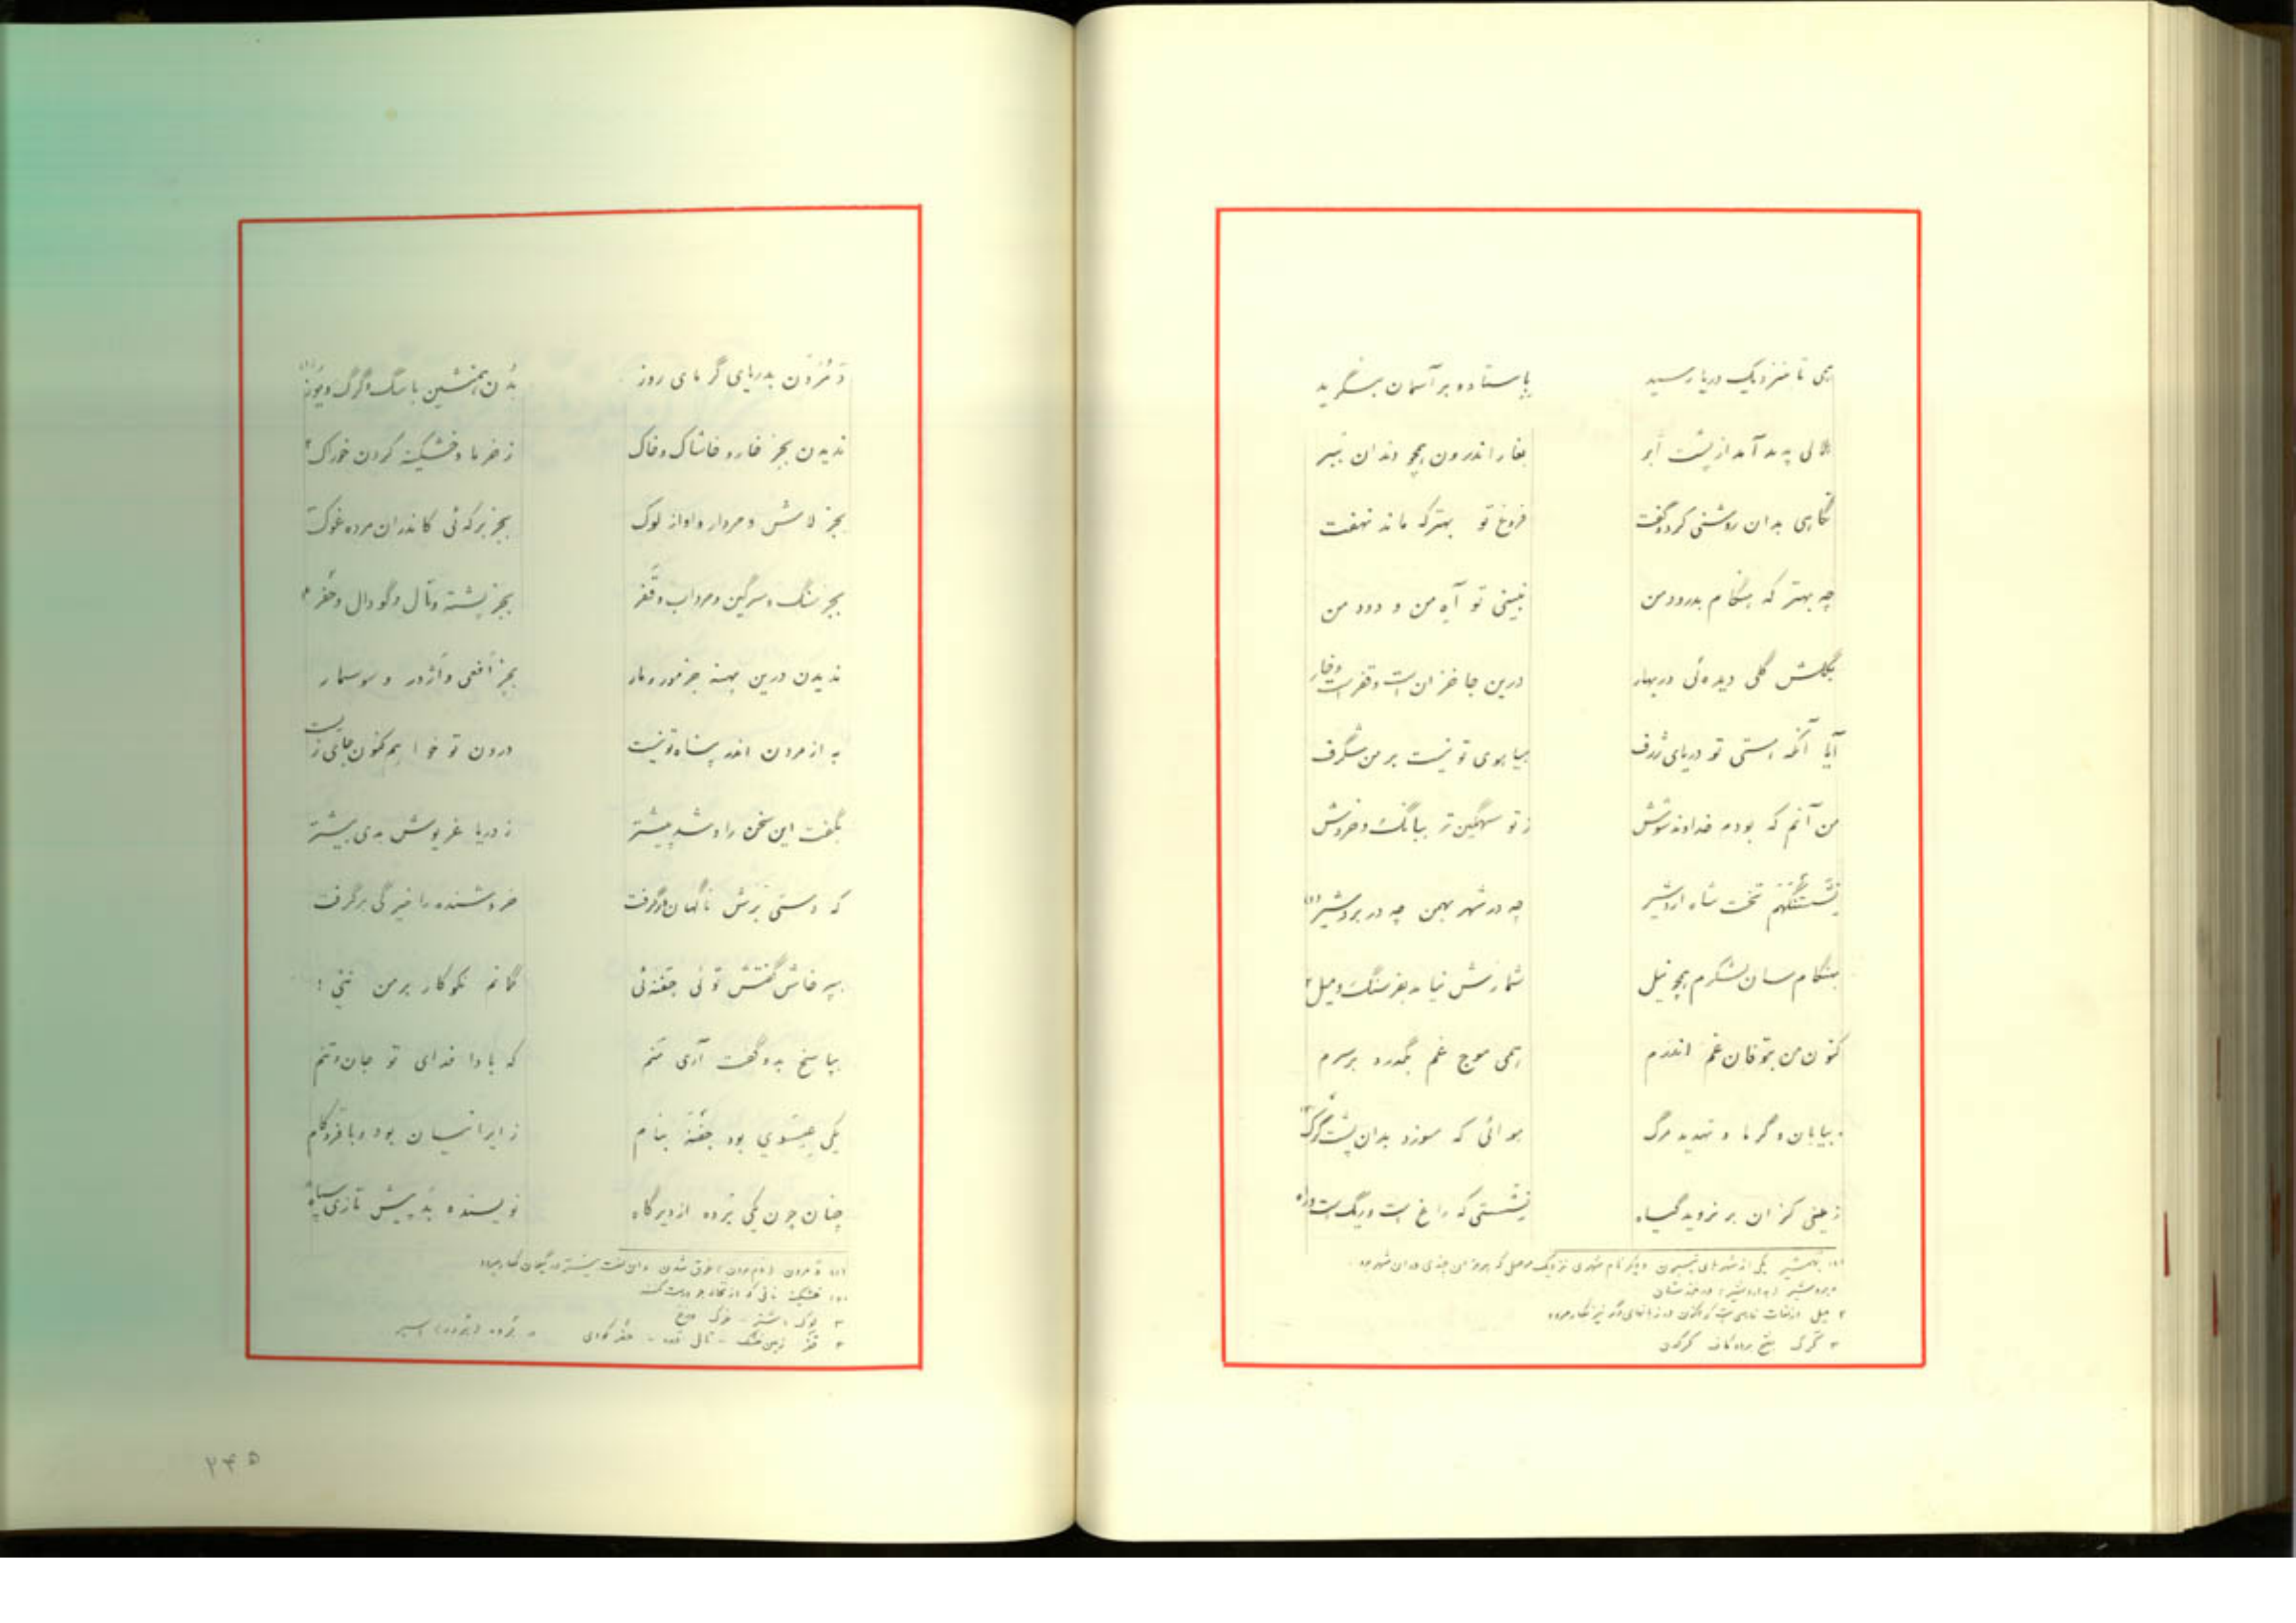 همی تا بنزدیک دریا رسید بایستاد و بر آسمان بنگرید
هلالی پدید آمد از پشت ابر بغار اندرون همچو دندان ببر
نگاهی بدان روشنی کرد و گفت فروغ تو بهتر که ماند نهفت
چه بهتر که هنگام بدرود من نبینی تو آه من و دود من
بگلشن گلی دیده‌ئی در بهار درین جا خزان است و قفر است و خار
آیا آنکه هستی تو دریای ژرف هیاهوی تو نیست بر من شگرف
من آنم که بودم خداوند شوش ز تو سهمگین‌تر ببانگ و خروش
تخت شاه اردشیر چه در شهر بهمن چه در بردشیر (۱)
بهنگام سان لشگرم همچو نیل شمارش نیامد بفرسنگ و میل ۲
کنون من بتوفان غم اندرم همی موج غم بگذرد بر سرم
بیابان و گرما و تهدید مرگ هوائی که سوزد بدان پشت کرگ ۳
زمینی کزان بر نروید گیاه نشستی که راغ است و ریگ است و راه
(۱) بهمنشیر یکی از شهرهای تیسپون و دیگر نام شهری نزدیک موصل که
۳ کرگ بفتح کاف کرگدن
دمردن بدریای گرمای روز بدن همنشین با سگ و گرگ و یوز (۱)
ندیدن بجز خار و خاشاک و خاک ز خرما و خشکینه کردن خوراک ۲
بجز لاش و مردار و آواز لوک بجز برکه‌ئی کاندران مرده غوک
بجز سنگ و سرگین و مرداب و قفر بجز پشته و تال و گودال و حفر ۴
ندیدن درین پهنه جز مور و مار بجز افعی و اژدر و سوسمار
به از مردن اندر پناه تو نیست درون تو خواهم کنون جای زیست
بگفت این سخن را و شد پیشتر ز دریا غریوش بدی بیشتر
که دستی برش ناگهان در گرفت خروشنده را خیرگی بر گرفت
بپرخاش گفتش توئی جفنه‌ئی گمانم نکوکار بر من نئی !
بپاسخ بدو گفت آری منم که بادا فدای تو جان و تنم
یکی عیسوی بود جفنه بنام ز ایرانیان بود و با فر و کام
چنان چون یکی برده از دیرگاه نویسنده بد پیش تازی سپاه ۵
(۱) دمردن غرق شدن
(۲) خشکینه نانی که از
۳ لوک شتر - غوک وزغ
۴ قفر زمین خشک - تال تپه - حفر گودی ۵ برده اسیر
۲۴۵